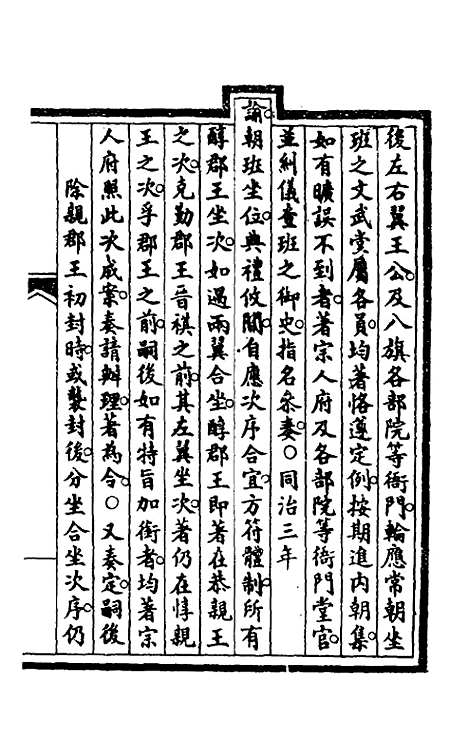 後左右翼王公及八旗各部院等衙門輪應常朝坐
班之文武堂屬各員均著恪遵定例按期進内朝集
如有曠誤不到者著宗人府及各部院等衙門堂官
並糾儀查班之御史指名叅奏○同治三年
諭朝班坐位典禮攸關自應次序合宜方符體制所有
醇郡王坐次如遇兩翼合坐醇郡王即著在恭親王
之次克勤郡王晉祺之前其左翼坐次著仍在惇親
王之次孚郡王之前嗣後如有特旨加銜者均著宗
人府照此次成案奏請辦理著為令○又奏定嗣後
除親郡王初封時或襲封後分坐合坐次序仍